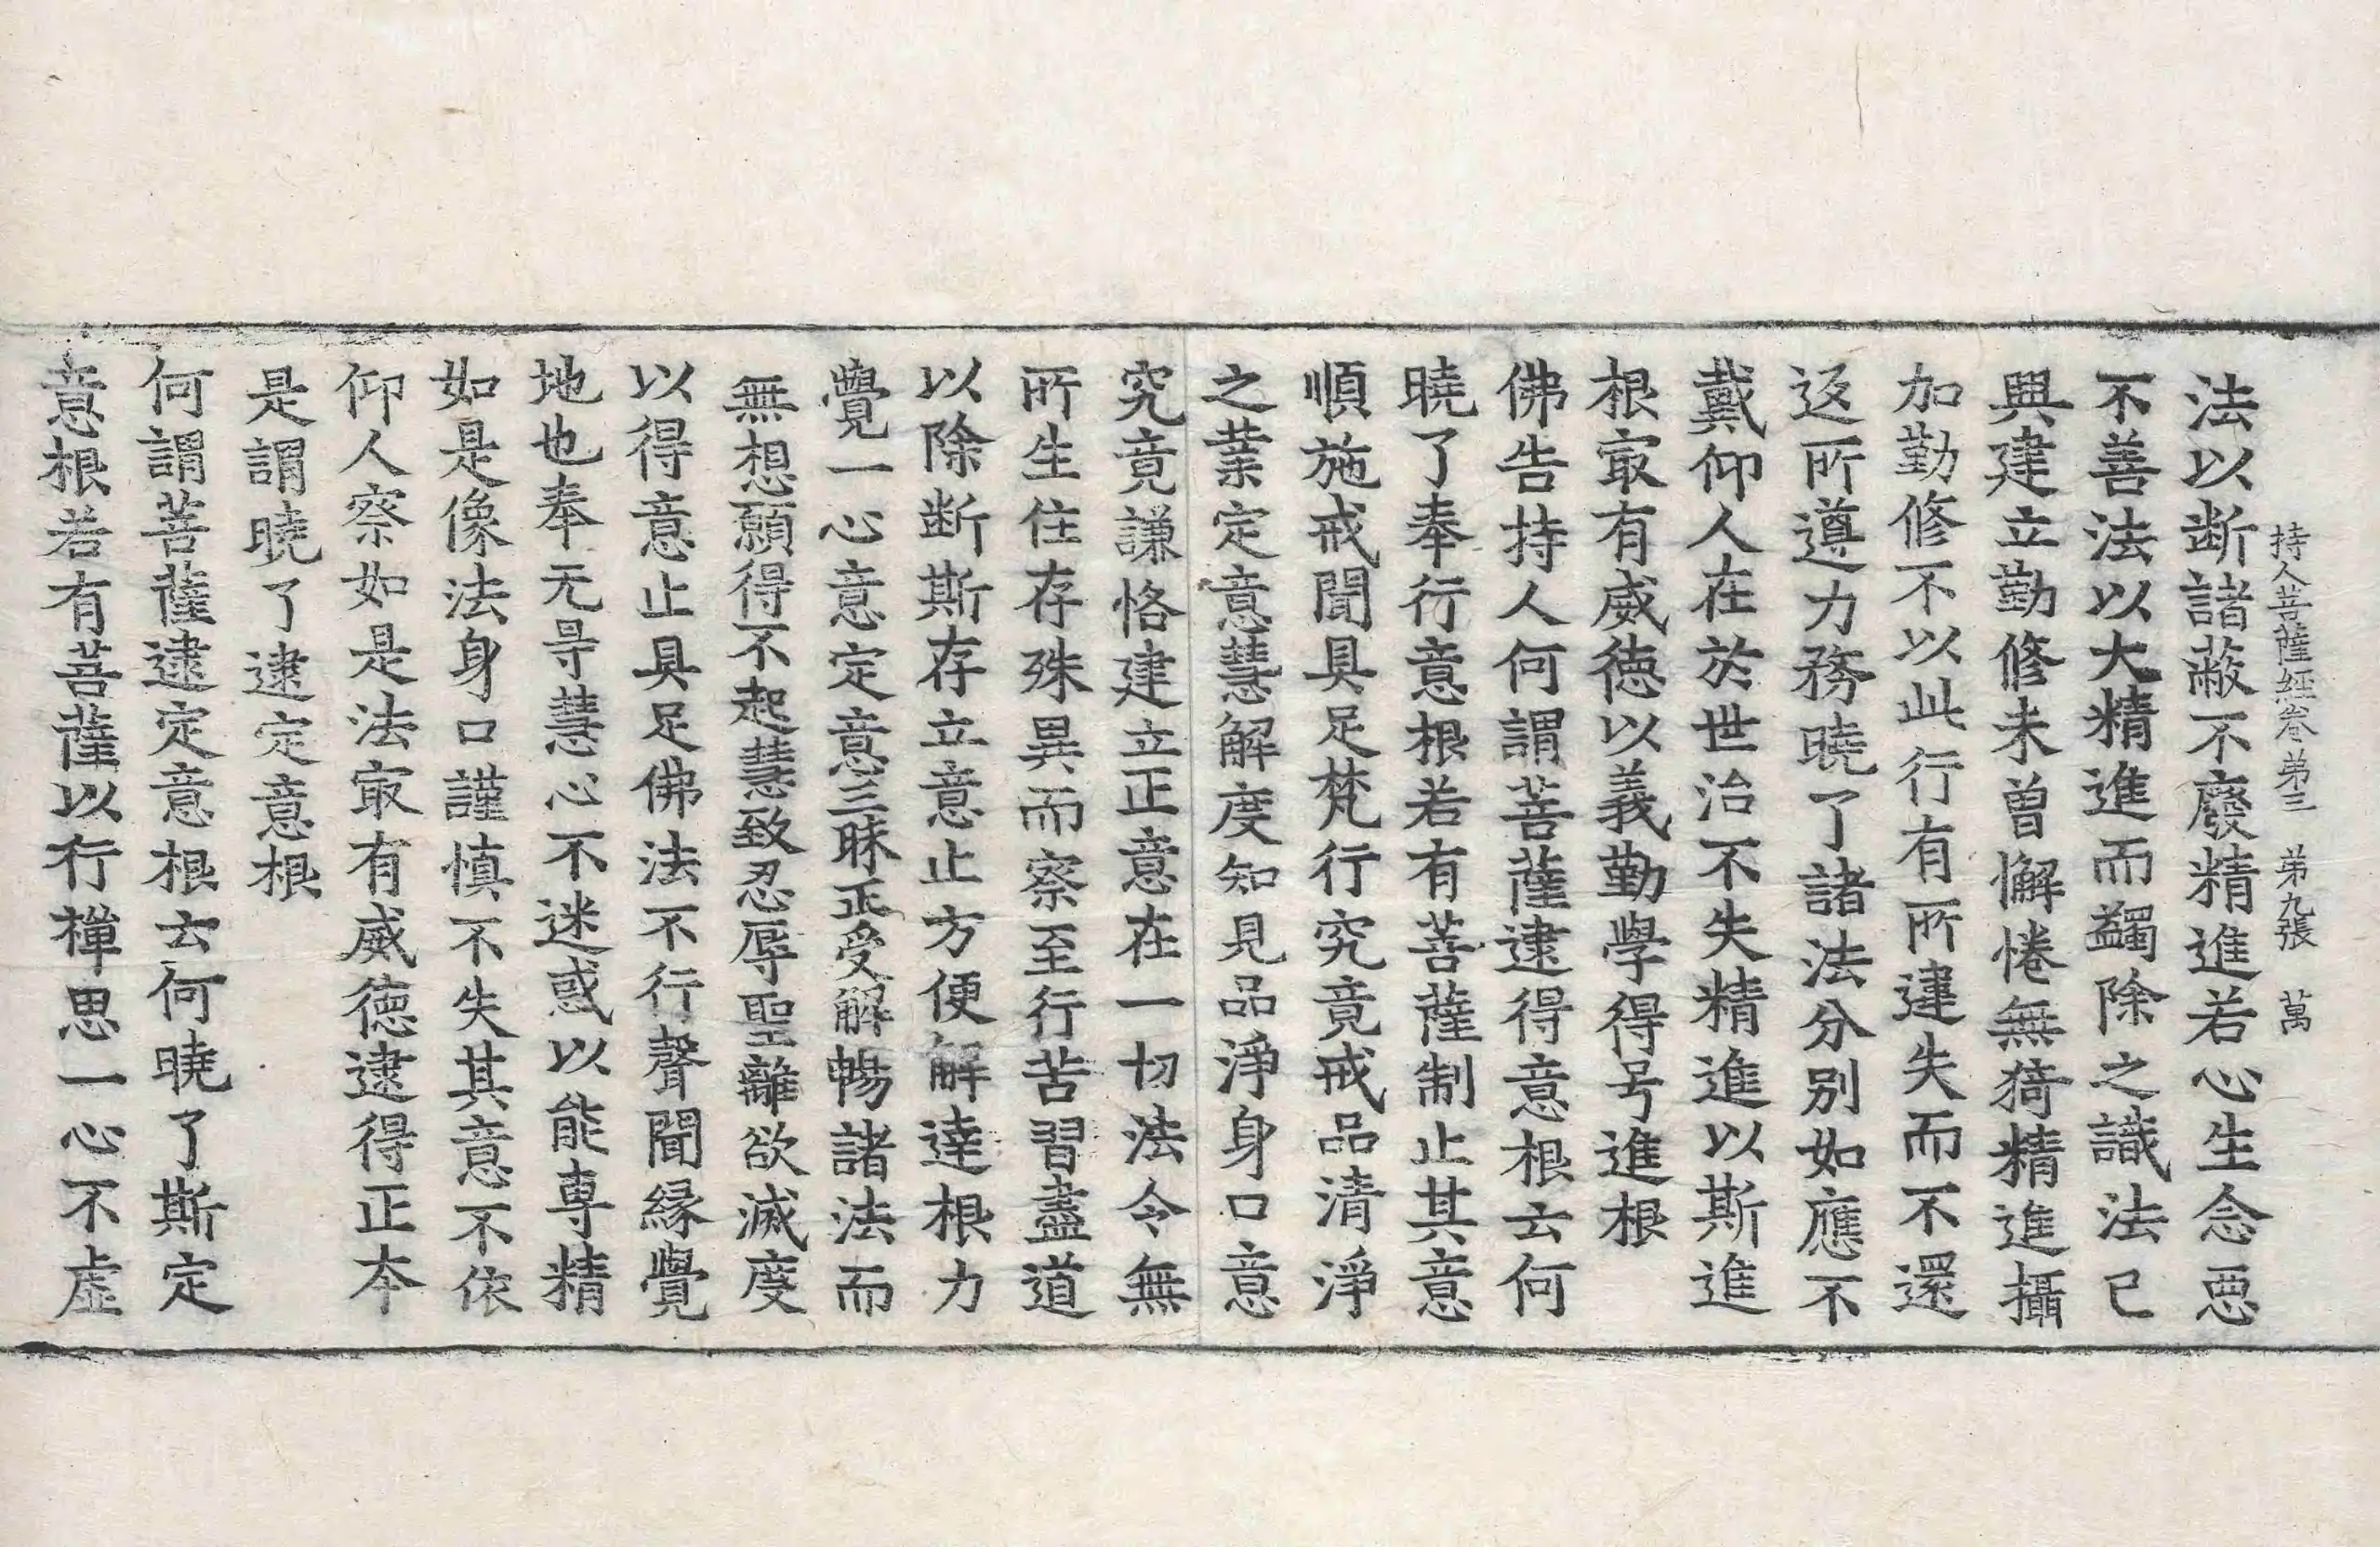 持人菩薩經卷第三 第九張 萬
法以断諸蔽不廢精進若心生念惡
不善法以大精進而蠲除之識法已
興建立勤修未曾懈惓無猗精進攝
加勤修不以此行有所違失而不還
返所遵力務曉了諸法分別如應不
戴仰人在於世治不失精進以斯進
根㝡有威德以義勤學得号進根
佛告持人何謂菩薩逮得意根云何
曉了奉行意根若有菩薩制止其意
順施戒聞具足梵行究竟戒品清淨
之業定意慧解度知見品淨身口意
究竟謙恪建立正意在一切法令無
所生住存殊異而察至行苦習盡道
以除断斯存立意止方便解達根力
覺一心意定意三昧正受解暢諸法而
無想願得不起慧致忍辱聖離欲滅度
以得意止具足佛法不行聲聞縁覺
地也奉无㝵慧心不迷惑以能専精
如是像法身口謹慎不失其意不依
仰人察如是法㝡有威德逮得正本
是謂曉了逮定意根
何謂菩薩逮定意根云何曉了斯定
意根若有菩薩以行禪思一心不虛